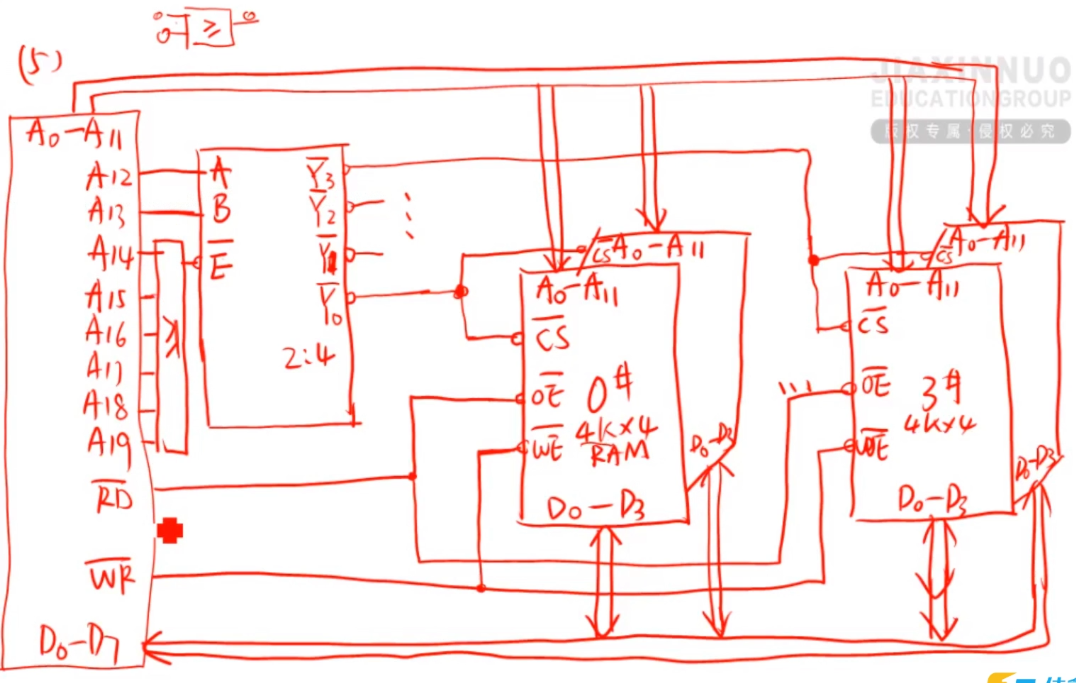 ≥
(5)
JIAXINNUO
EDUCATIONGROUP
版权专属·侵权必究
A0-A11
A12
A13
A14
A15
A16
A17
A18
A19
RD
WR
D0-D7
≥
A
B
E
Y3
Y2
Y1
Y0
2:4
CS A0-A11
A0-A11
CS
OE
WE
0#
4K×4
RAM
D0-D3
D0-D3
CS A0-A11
A0-A11
CS
OE
WE
3#
4K×4
D0-D3
D0-D3